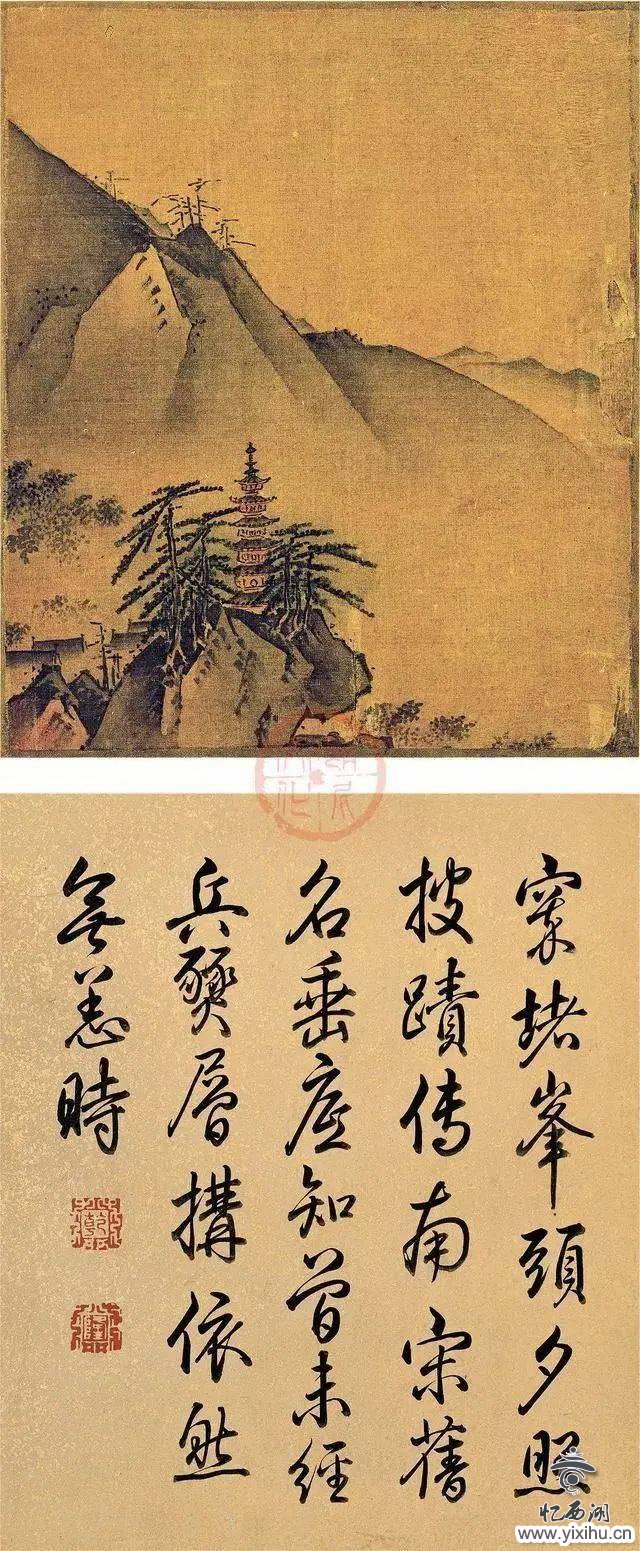 窣堵峯頭夕照
披蹟傳南宋舊
名垂底知曾未經
兵燹層搆依然
無恙時
乾
隆
忆西湖
www.yixihu.cn